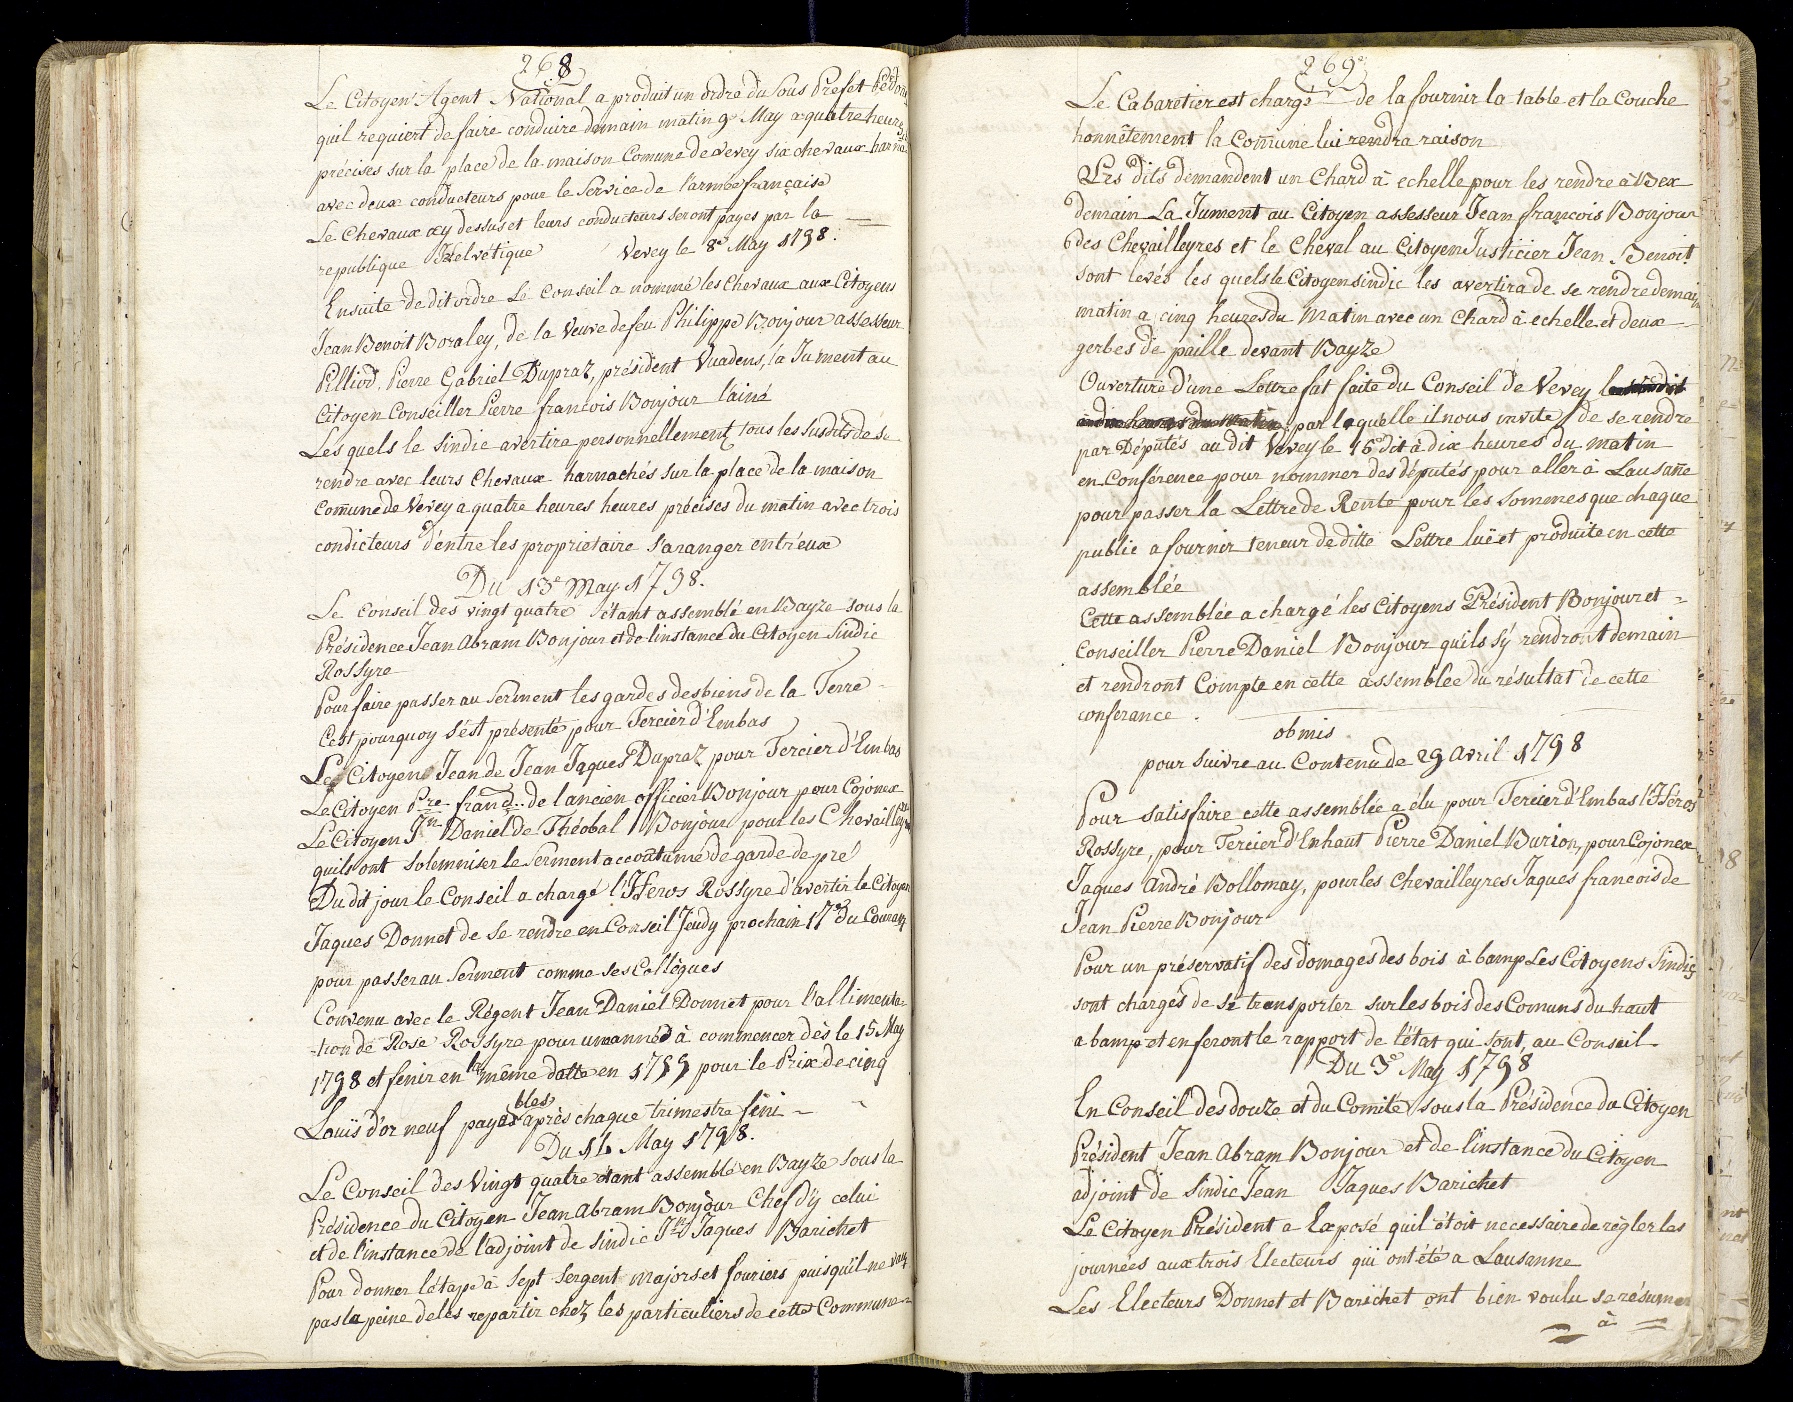 268
Le Citoyen Agent National a produit un ordre du Sous Prefet
quil requiert de faire conduire demain matin 9e May a quatre heures
précises sur la place de la maison Comune de Vevey six chevaux harna
avec deux conducteurs pour le Service de l'armée française
Le Chevaux cy dessus et leurs conducteurs seront payes par la
republique Helvetique Vevey le 8e May 1798.
Ensuite de dit ordre Le Conseil a nommé les Chevaux aux Citoyens
Jean Benoit Boraley, de la Veuve de feu Philippe Bonjour assesseur
Pilliod, Pierre Gabriel Dupraz, président Vuadens, la Jument au
Citoyen Conseiller Pierre francois Bonjour l'ainé
Les quels le Sindic avertira personnellement tous les susdits de se
rendre avec leurs Chevaux harnachés sur la place de la maison
Comune de Vevey a quatre heures heures précises du matin avec trois
condicteurs d'entre les proprietaire s'aranger entr'eux
Du 13e May 1798.
Le Conseil des vingt quatre étant assemblé en Bayze sous la
Présidence Jean Abram Bonjour et de l'instance du Citoyen Sindic
Rossyre
Pour faire passer au Serment les gardes des biens de la Terre
C'est pourquoy s'ést présenté pour Tercier d'Embas
Le Citoyen Jean de Jean Jaques Dupraz pour Tercier d'Embas
Le Citoyen Pre franc. de l'ancien officier Bonjour pour Cojonex
Le Citoyen Jn Daniel de Théobal Bonjour pour les Chevailleyres
quils ont solemniser le Serment accoutumé de garde de pré
Du dit jour le Conseil a chargé l'Heros Rossyre d'avertir le Citoyen
Jaques Donnet de se rendre en Conseil Jeudy prochain 17e du Courant
pour passer au Serment comme ses Collègues
Convenu avec le Régent Jean Daniel Donnet pour l'allimenta-
-tion de Rose Rossyre pour un année à commencer dès le 15 May
1798 et fenir en la même datte en 1799 pour le Prix de cinq
Louïs d'or neuf payables après chaque trimestre fini -
Du 14 May 1798.
Le Conseil des Vingt quatre étant assemblé en Bayze sous la
Présidence du Citoyen Jean Abram Bonjour Chef d'y celui
et de l'instance de l'adjoint de sindic Jn Jaques Barichet
Pour donner l'étape à Sept Sergent majors et fouriers puisqu'il ne vaut
pas la peine de les repartir chez les particuliers de cette Commune
269
Le Cabaretier est chargé de la fournir la table et la Couche
honnêtement la Comune lui rendra raison
Les dits demandent un Chard à echelle pour les rendre à Bex
demain La Jument au Citoyen assesseur Jean francois Bonjour
des Chevailleyres et le Cheval au Citoyen Justicier Jean Benoit
sont levés les quels le Citoyen sindic les avertira de se rendre demain
matin a cinq heures du Matin avec un Chard à echelle et deux
gerbes de paille devant Bayze
Ouverture d'une Lettre fut faite du Conseil de Vevey
par laquelle il nous invite de se rendre
par Députés au dit Vevey le 16e dit à dix heures du matin
en Conférence pour nommer des députés pour aller a Lausane
pour passer la Lettre de Rente pour les sommes que chaque
public a fournir teneur de ditte Lettre luë et produite en cette
assemblée
Cette assemblée a chargé les Citoyens Président Bonjour et =
Conseiller Pierre Daniel Bonjour quils s'y rendront demain
et rendront Compte en cette assemblée du résultat de cette
conferance.
obmis
pour suivre au Contenu de 29 Avril 1798
Pour satisfaire cette assemblée a élu pour Tercier d'Embas l'Héros
Rossyre, pour Tercier d'Enhaut Pierre Daniel Burion, pour Cojonex
Jaques André Bollomay, pour les Chevailleyres Jaques francois de
Jean Pierre Bonjour
Pour un préservatif des domages des bois à bamp Les Citoyens Sindics
sont chargés de se transporter sur les bois des Comuns du haut
a bamp et en feront le rapport de l'état qui sont, au Conseil
Du 3e May 1798
En Conseil des douze et du Comité sous la Présidence du Citoyen
Président Jean Abram Bonjour et de l'instance du Citoyen
adjoint de Sindic Jean Jaques Barichet
Le Citoyen Président a Exposé quil étoit necessaire de règler les
journées aux trois Electeurs qui ont été a Lausanne
Les Electeurs Donnet et Barichet ont bien voulu se résumer
à